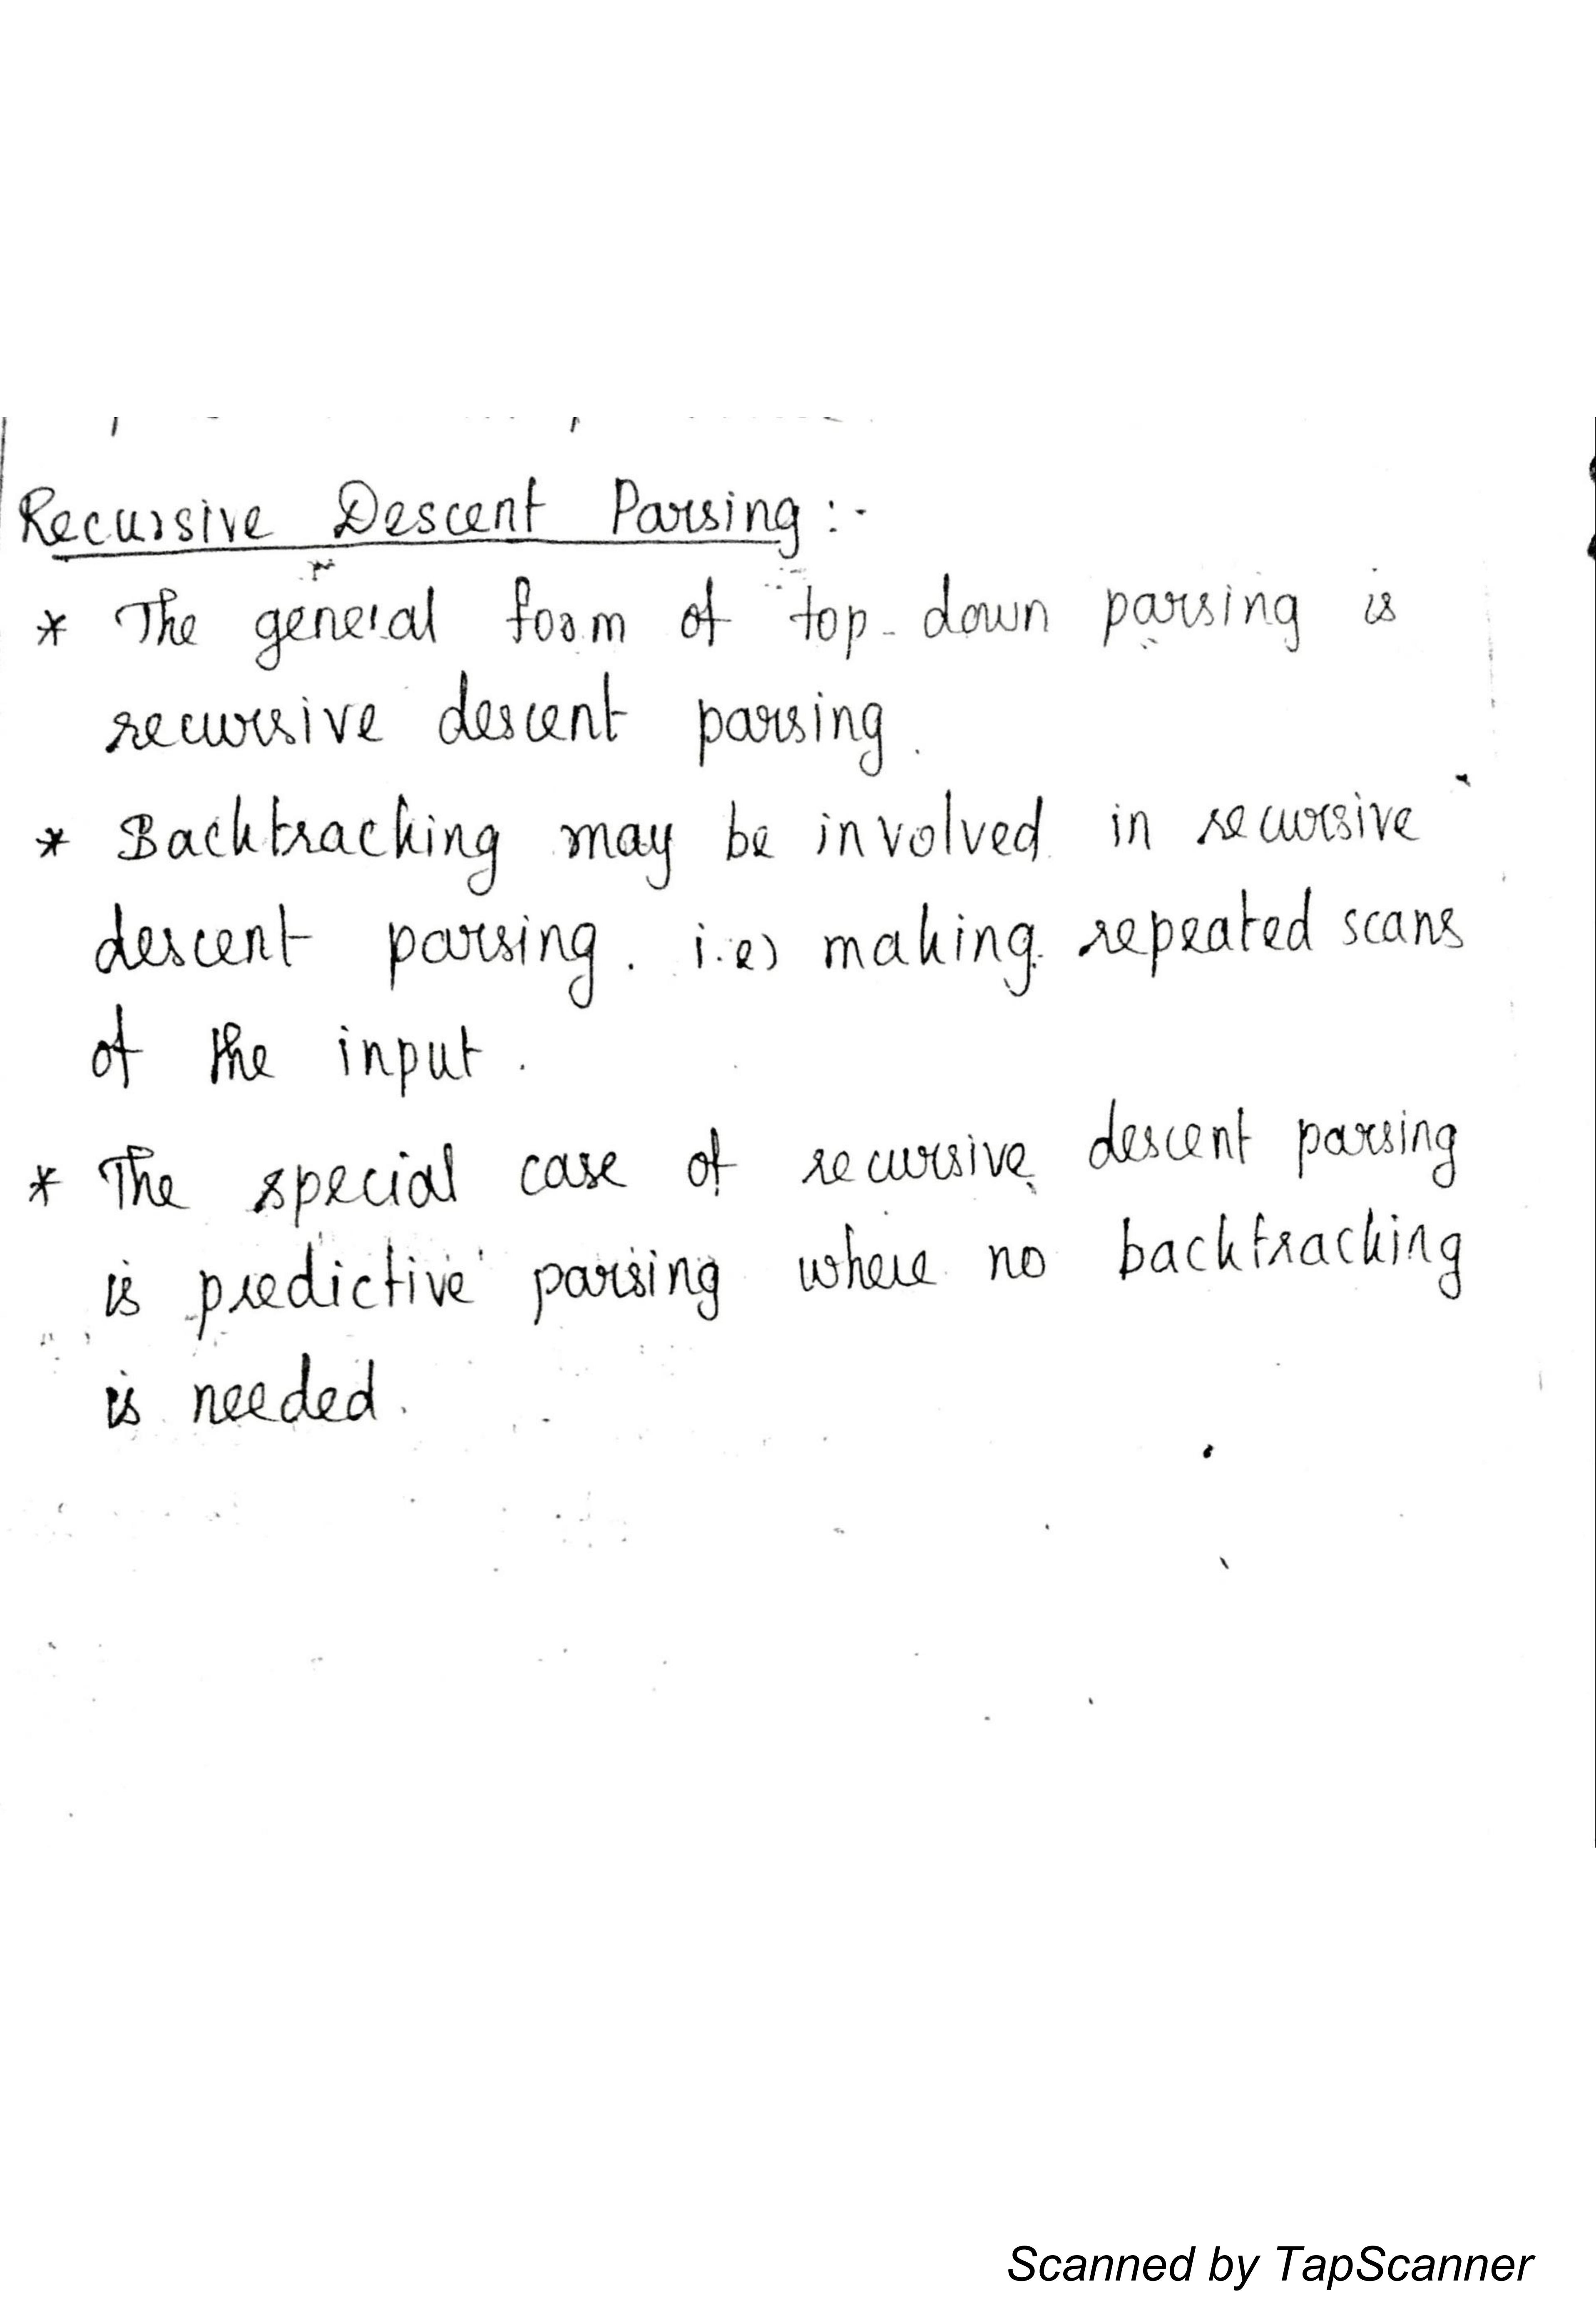 Recursive Descent Parsing :-
* The general form of top-down parsing is
recursive descent parsing.
* Backtracking may be involved in recursive
descent parsing. i.e) making repeated scans
of the input.
* The special case of recursive descent parsing
is predictive parsing where no backtracking
is needed.
Scanned by TapScanner